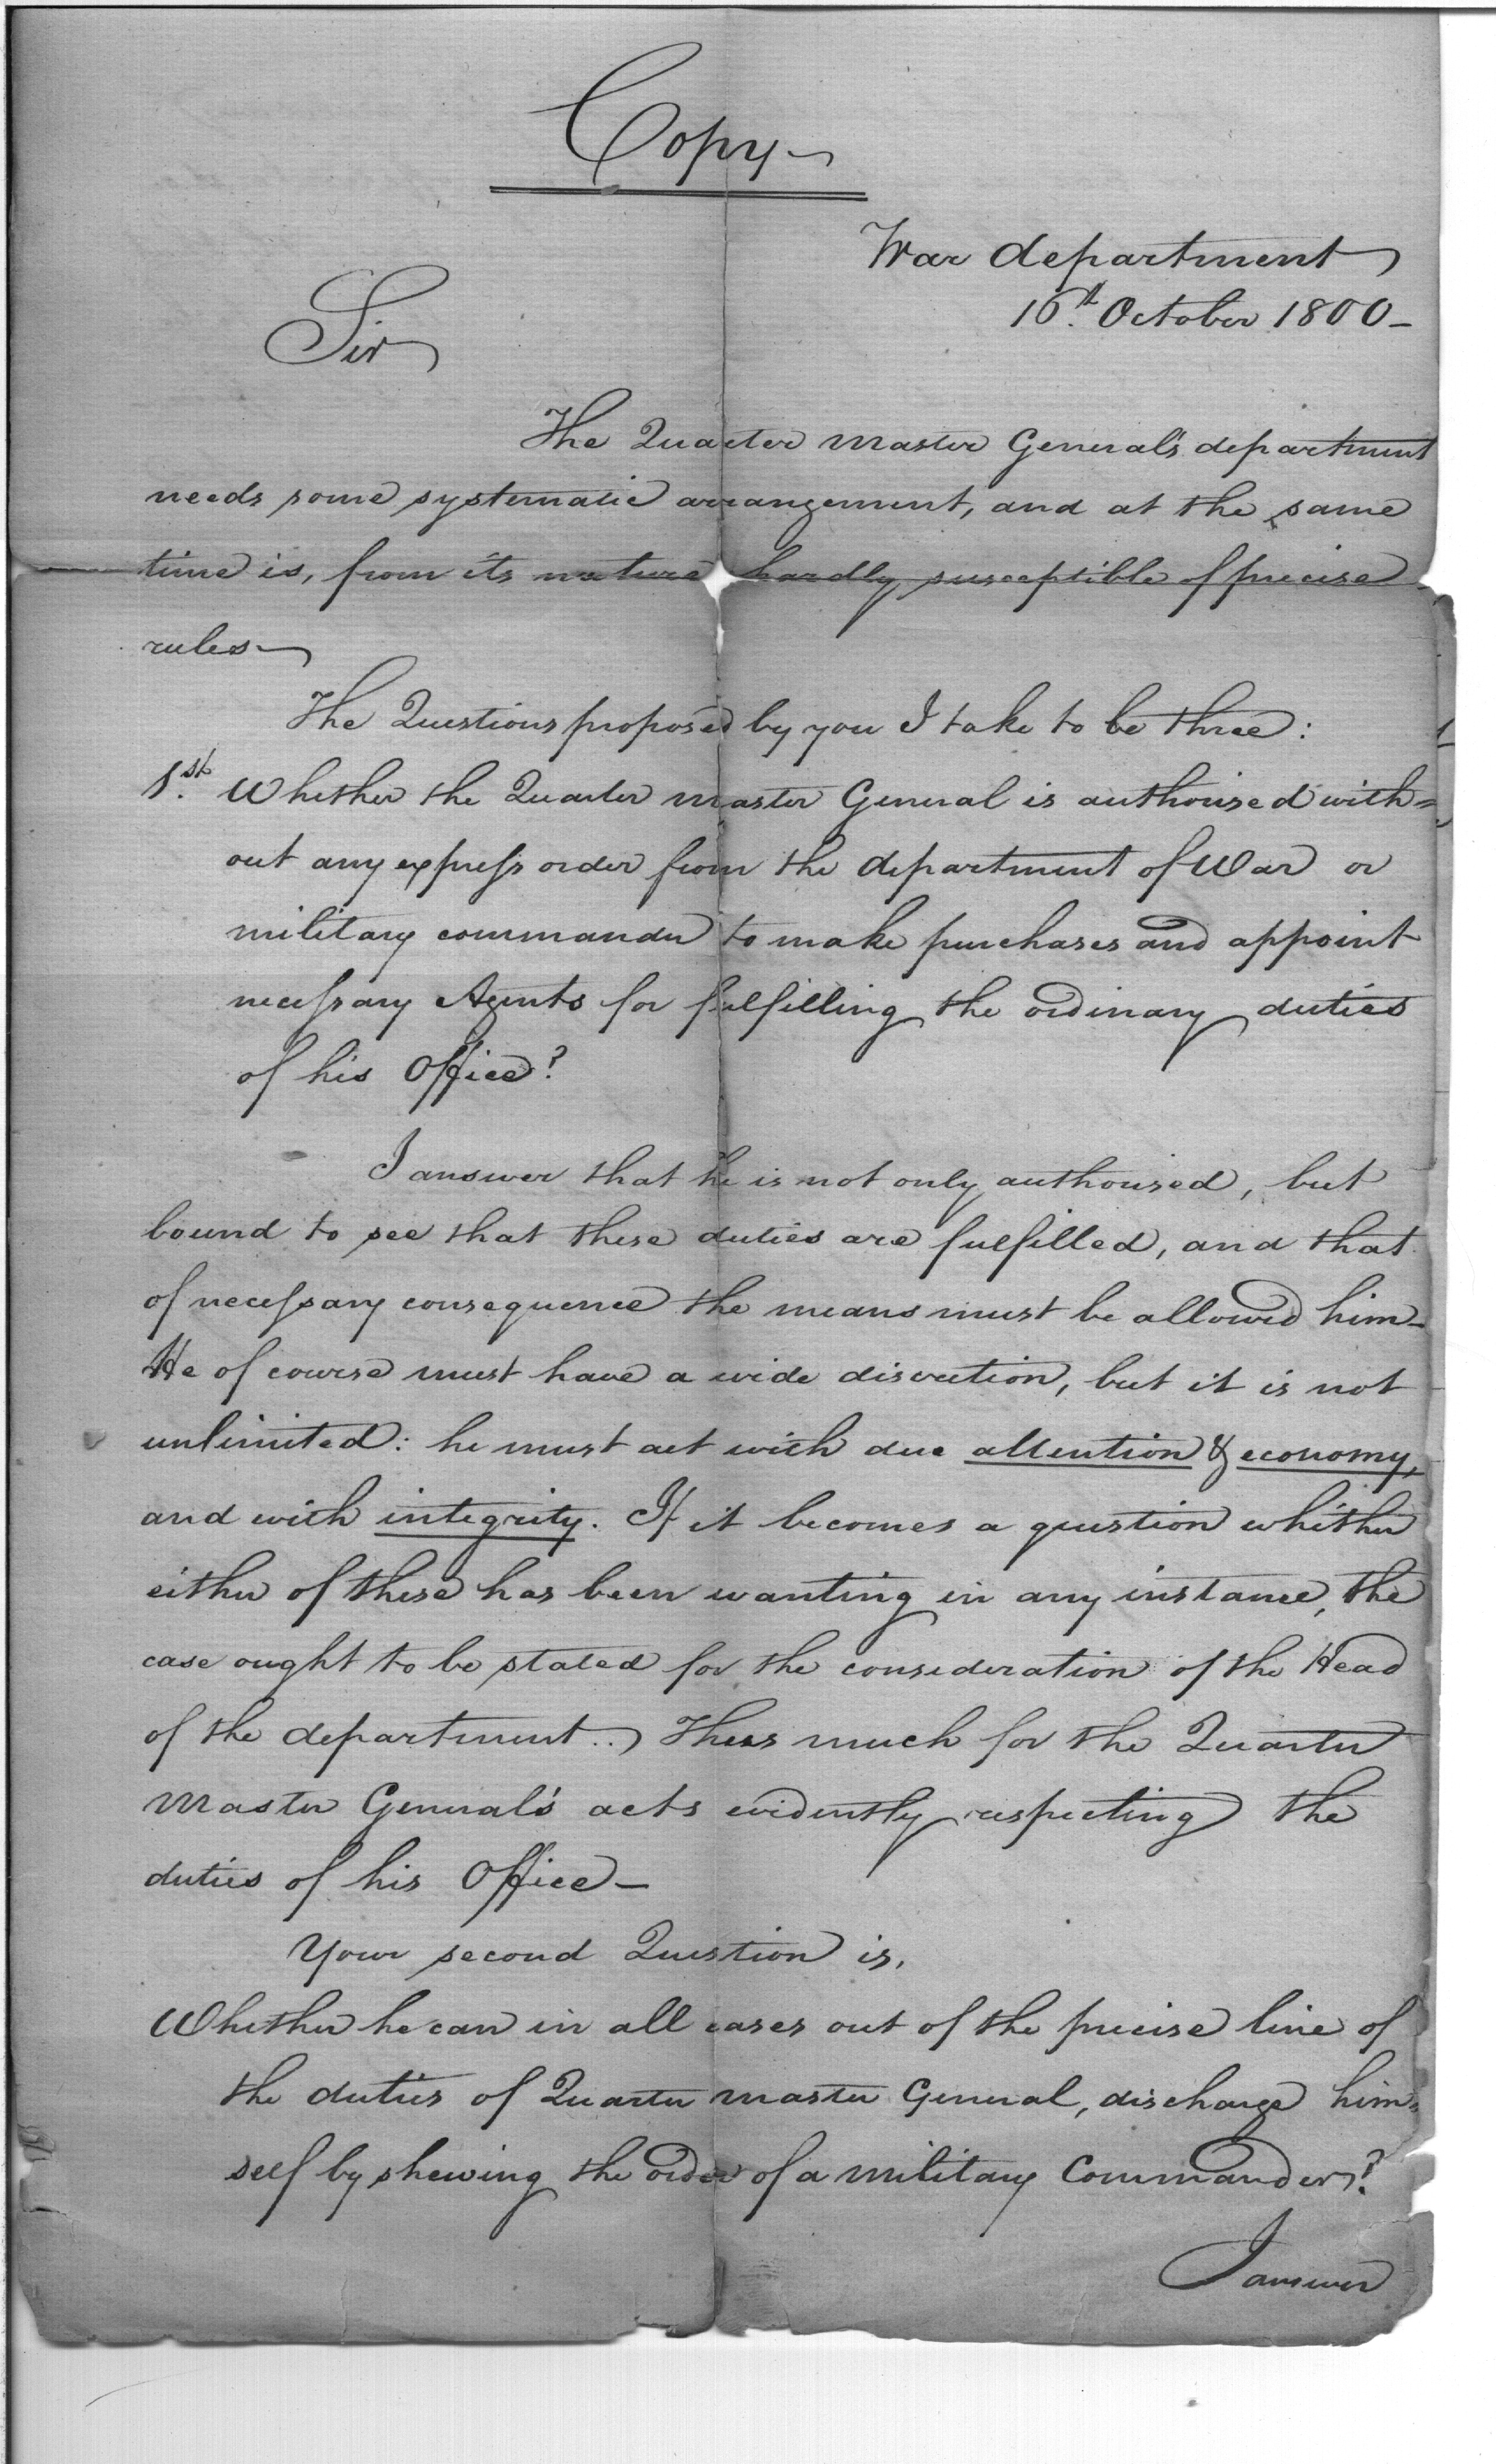 Copy
War department
16th. October 1800 -
Sir
The Quarter Master General's department
needs some systematic arrangement, and at the same
time is, from its nature hardly susceptible of precise
rules -
The Questions proposed by you I take to be three:
1st. Whether the Quarter Master General is authorised with=
out any express order from the department of War or
military commander to make purchases and appoint
necessary Agents for fulfilling the ordinary duties
of his Office?
I answer that he is not only authorised, but
bound to see that these duties are fulfilled, and that
of necessary consequence the means must be allowed him -
He of course must have a wide discretion, but it is not
unlimited: he must act with due attention & economy,
and with integrity. If it becomes a question whither
either of these has been wanting in any instance, the
case ought to be stated for the consideration of the Head
of the department.. Thus much for the Quarter
Master General's acts evidently respecting the
duties of his Office -
Your second Question is,
Whether he can in all cases out of the precise line of
the duties of Quarter master General, discharge him=
self by shewing the order of a military Commander?
I answer